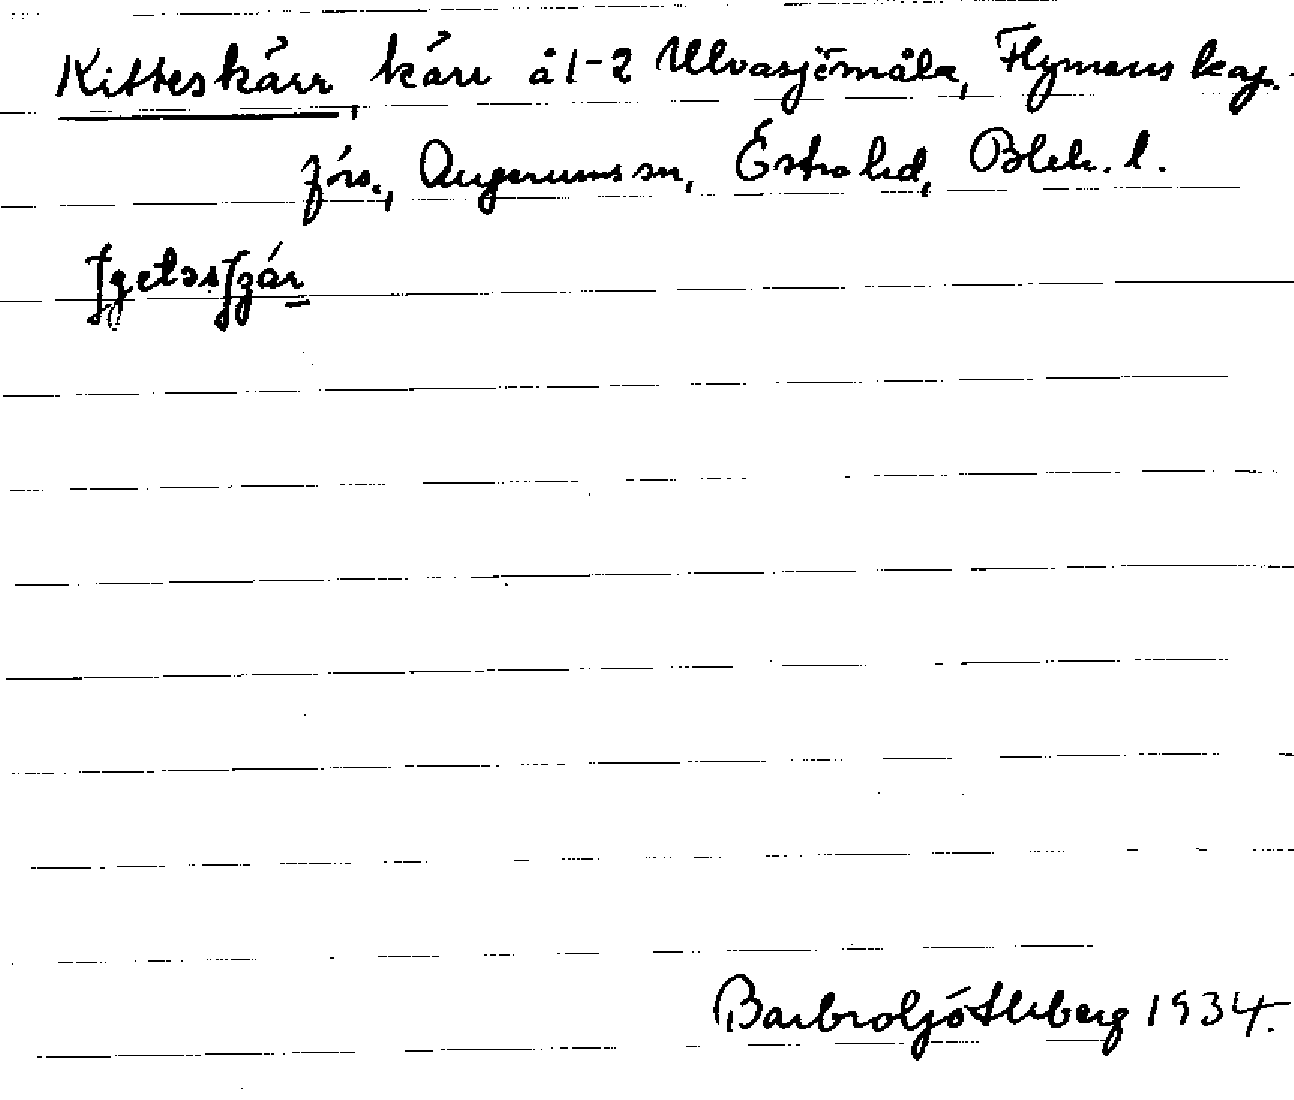 Kitteskärr, kärr å 1-2 Ulvasjömåla, Flymens kap.
förs., Augerums sn, Östra hd, Blek. l.
Barbro Götheberg 1934.